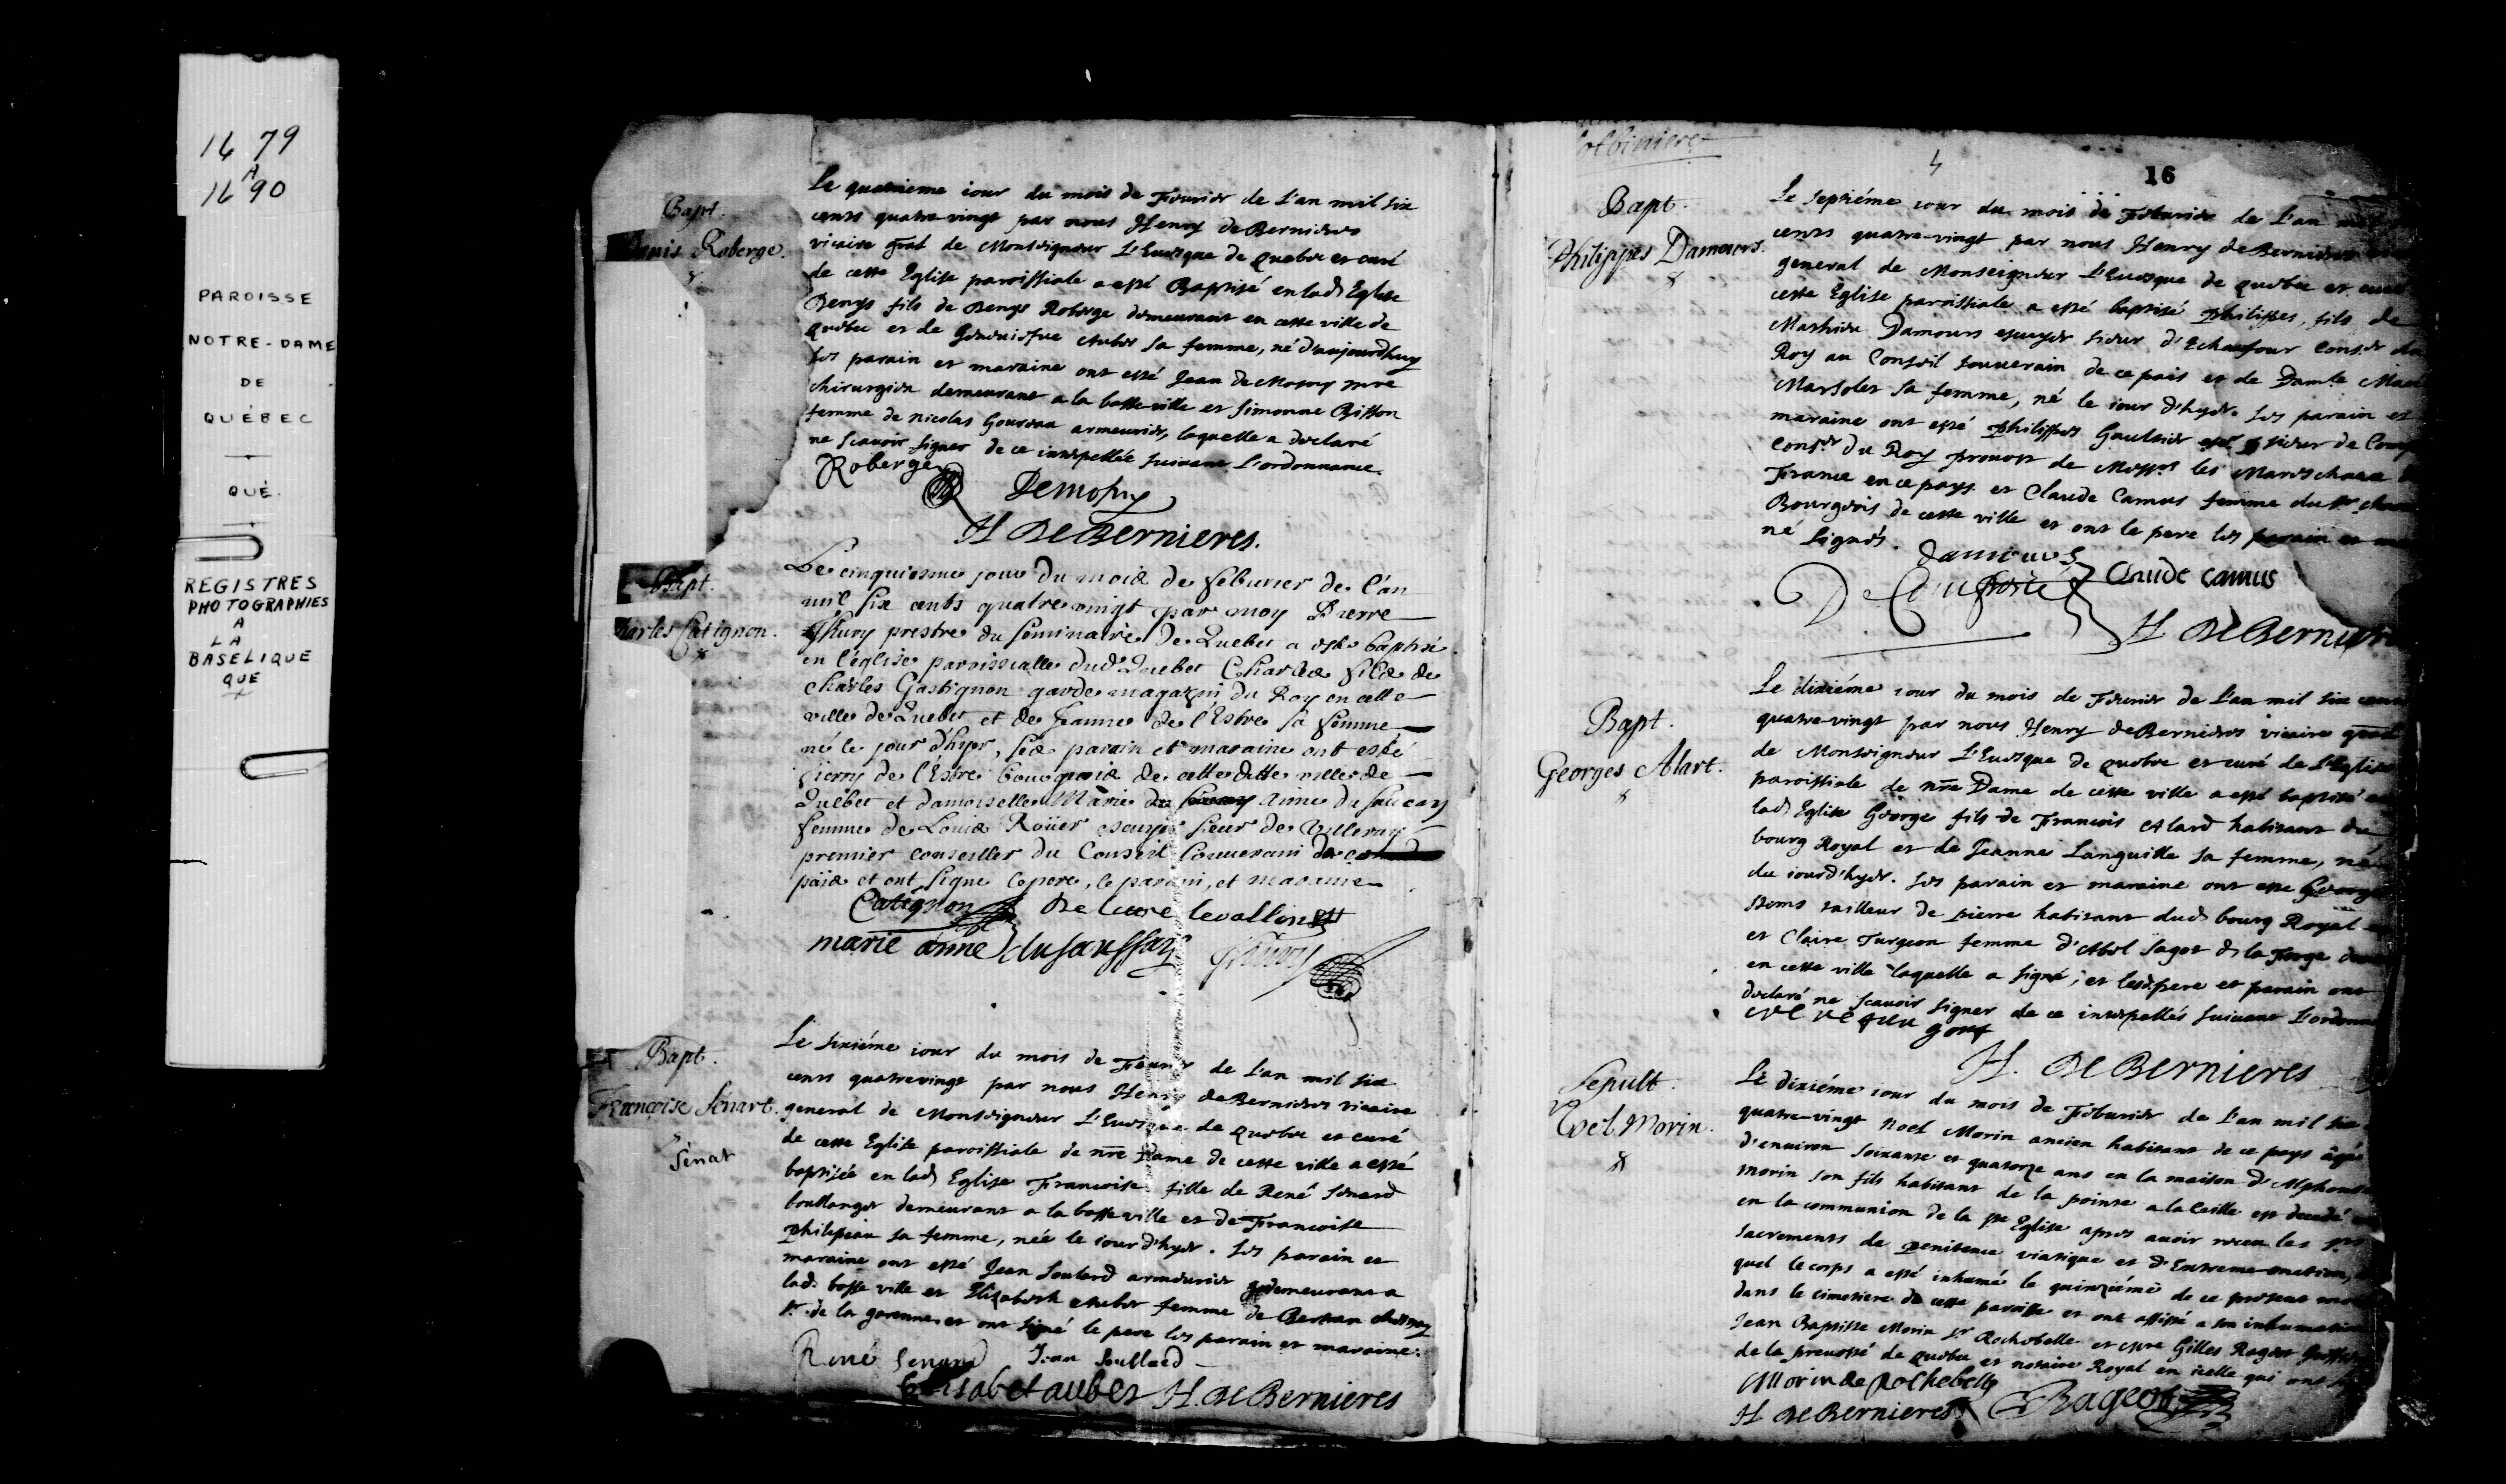 1679
A
1690
PAROISSE
NOTRE-DAME
DE
QUÉBEC
QUÉ.
REGISTRES
PHOTOGRAPHIES
A
LA
BASELIQUE
QUE
Bapt.
Denis Roberge.
Le quatrieme iour du mois de Feurier de L'an mil six
cents quatre-vingt par nous Henry de Bernieres
vicaire gnal de Monseigneur L'Euesque de Quebec et curé
de cette Eglise paroissiale a esté Baptisé en lad. Eglise
Denys fils de Denys Roberge demeurant en cette ville de
Quebec et de Geneuiefue Auber sa femme, né d'aujourdhuy
ses parain et maraine ont esté Jean de Mosny mre
chirurgien demeurant a la basse-ville et Simonne Bisson
femme de nicolas Gourdau armeurier, laquelle a declaré
ne scauoir signer de ce interpellée suiuant l'ordonnance.
Roberge
Demosny
H DeBernieres.
Bapt.
Charles Catignon.
Le cinquiesme jour du mois de feburier de l'an
mil six cents quatre vingt par moy Pierre
Thury prestre du seminaire de Quebec a esté baptisé
en l'église paroissialle dud. Quebec Charles fils de
Charles Gastignon garde magazin du Roy en cette
ville de Quebec et de Jeanne de l'Estre sa femme
né le jour d'hyer, ses parain et maraine ont esté
Pierry de l'Estre bourgois de cette ditte ville de
Québec et damoiselle Marie Anne du saucay
femme de Louis Roüer escuyer sieur de Villeray
premier conseiller du Conseil Souuerain de ce
païs et ont signe le pere, le parain, et maraine
Catignon
De letre levallon
marie anne dusaussay
Thury
Bapt.
Françoise Sénart.
Sénat
Le sixiéme iour du mois de Feurier de L'an mil six
cents quatrevingt par nous Henry de Bernieres vicaire
general de Monseigneur L'Euesque de Quebec et curé
de cette Eglise paroissiale de nre Dame de cette ville a esté
baptisée en lad. Eglise Francoise fille de René Senard
boullanger demeurant a la basse ville et de Francoise
Philipeau sa femme, née le iour d'hyer. Ses parain et
maraine ont esté Jean Soulard armeurier demeurant a
lad. basse ville et Elizabeth Auber femme de Bertran chesnay
Sr. de la garenne et ont signé le pere les parain et maraine.
René Senard
Jean Soullard
Elisabet auber
H. DeBernieres
Lotbiniere
4
16
Bapt.
Philippes Damours.
Le septiéme iour du mois de Feburier de L'an
cents quatre-vingt par nous Henry de Bernieres
general de Monseigneur L'Euesque de Quebec et curé
cette Eglise paroissiale a esté baptisé Philippes, fils de
Mathieu Damours escuyer sieur d'Echaufour Conser du
Roy au Conseil souuerain de ce pais et de Damle Marie
Marsolet sa femme, né le iour d'hyer. Ses parain et
maraine ont esté Philippes Gaultier sieur de
Conser du Roy preuost de Messrs les Mareschaux
France en ce pays et Claude Camus femme du Sr
Bourgeois de cette ville et ont le pere les parain et
né signés.
damours
DeComporté
Claude camus
H DeBernieres
Bapt.
Georges Alart.
Le dixiéme iour du mois de Feurier de L'an mil six cents
quatre-vingt par nous Henry de Bernieres vicaire gnal
de Monseigneur L'Euesque de Quebec et curé de L'Eglise
paroissiale de nre Dame de cette ville a esté baptisé en
lad. Eglise George fils de Francois Alard habitant du
bourg Royal et de Jeanne Languille sa femme, né
du iourd'hyer. Ses parain et maraine ont esté George
Stems tailleur de pierre habitant dud. bourg Royal
et Claire Turgeon femme d'Abel Sagot de la Forge
en cette ville laquelle a signé, et lesd. pere et parain ont
declaré ne scauoir signer de ce interpellés suiuant L'ordonn
H. DeBernieres
Sepult.
Noel Morin.
Le dixiéme iour du mois de Feburier de L'an mil six
quatre-vingt Noel Morin ancien habitant de ce pays âgé
d'enuiron soixante et quatorze ans en la maison d'Alphonse
morin son fils habitant de la pointe a la Caille est decedé
en la communion de la Ste Eglise apres auoir receu les
sacrements de penitence viatique et d'Extreme-onction,
quel le corps a esté inhumé le quinziéme de ce present mois
dans le cimetiere de cette paroisse et ont assisté a son inhumation
Jean Baptiste Morin Sr Rochebelle et Gilles Rageot Greffier
de la preuosté de Quebec et notaire Royal en icelle qui ont
Morin de Rochebelle
H DeBernieres
Rageot